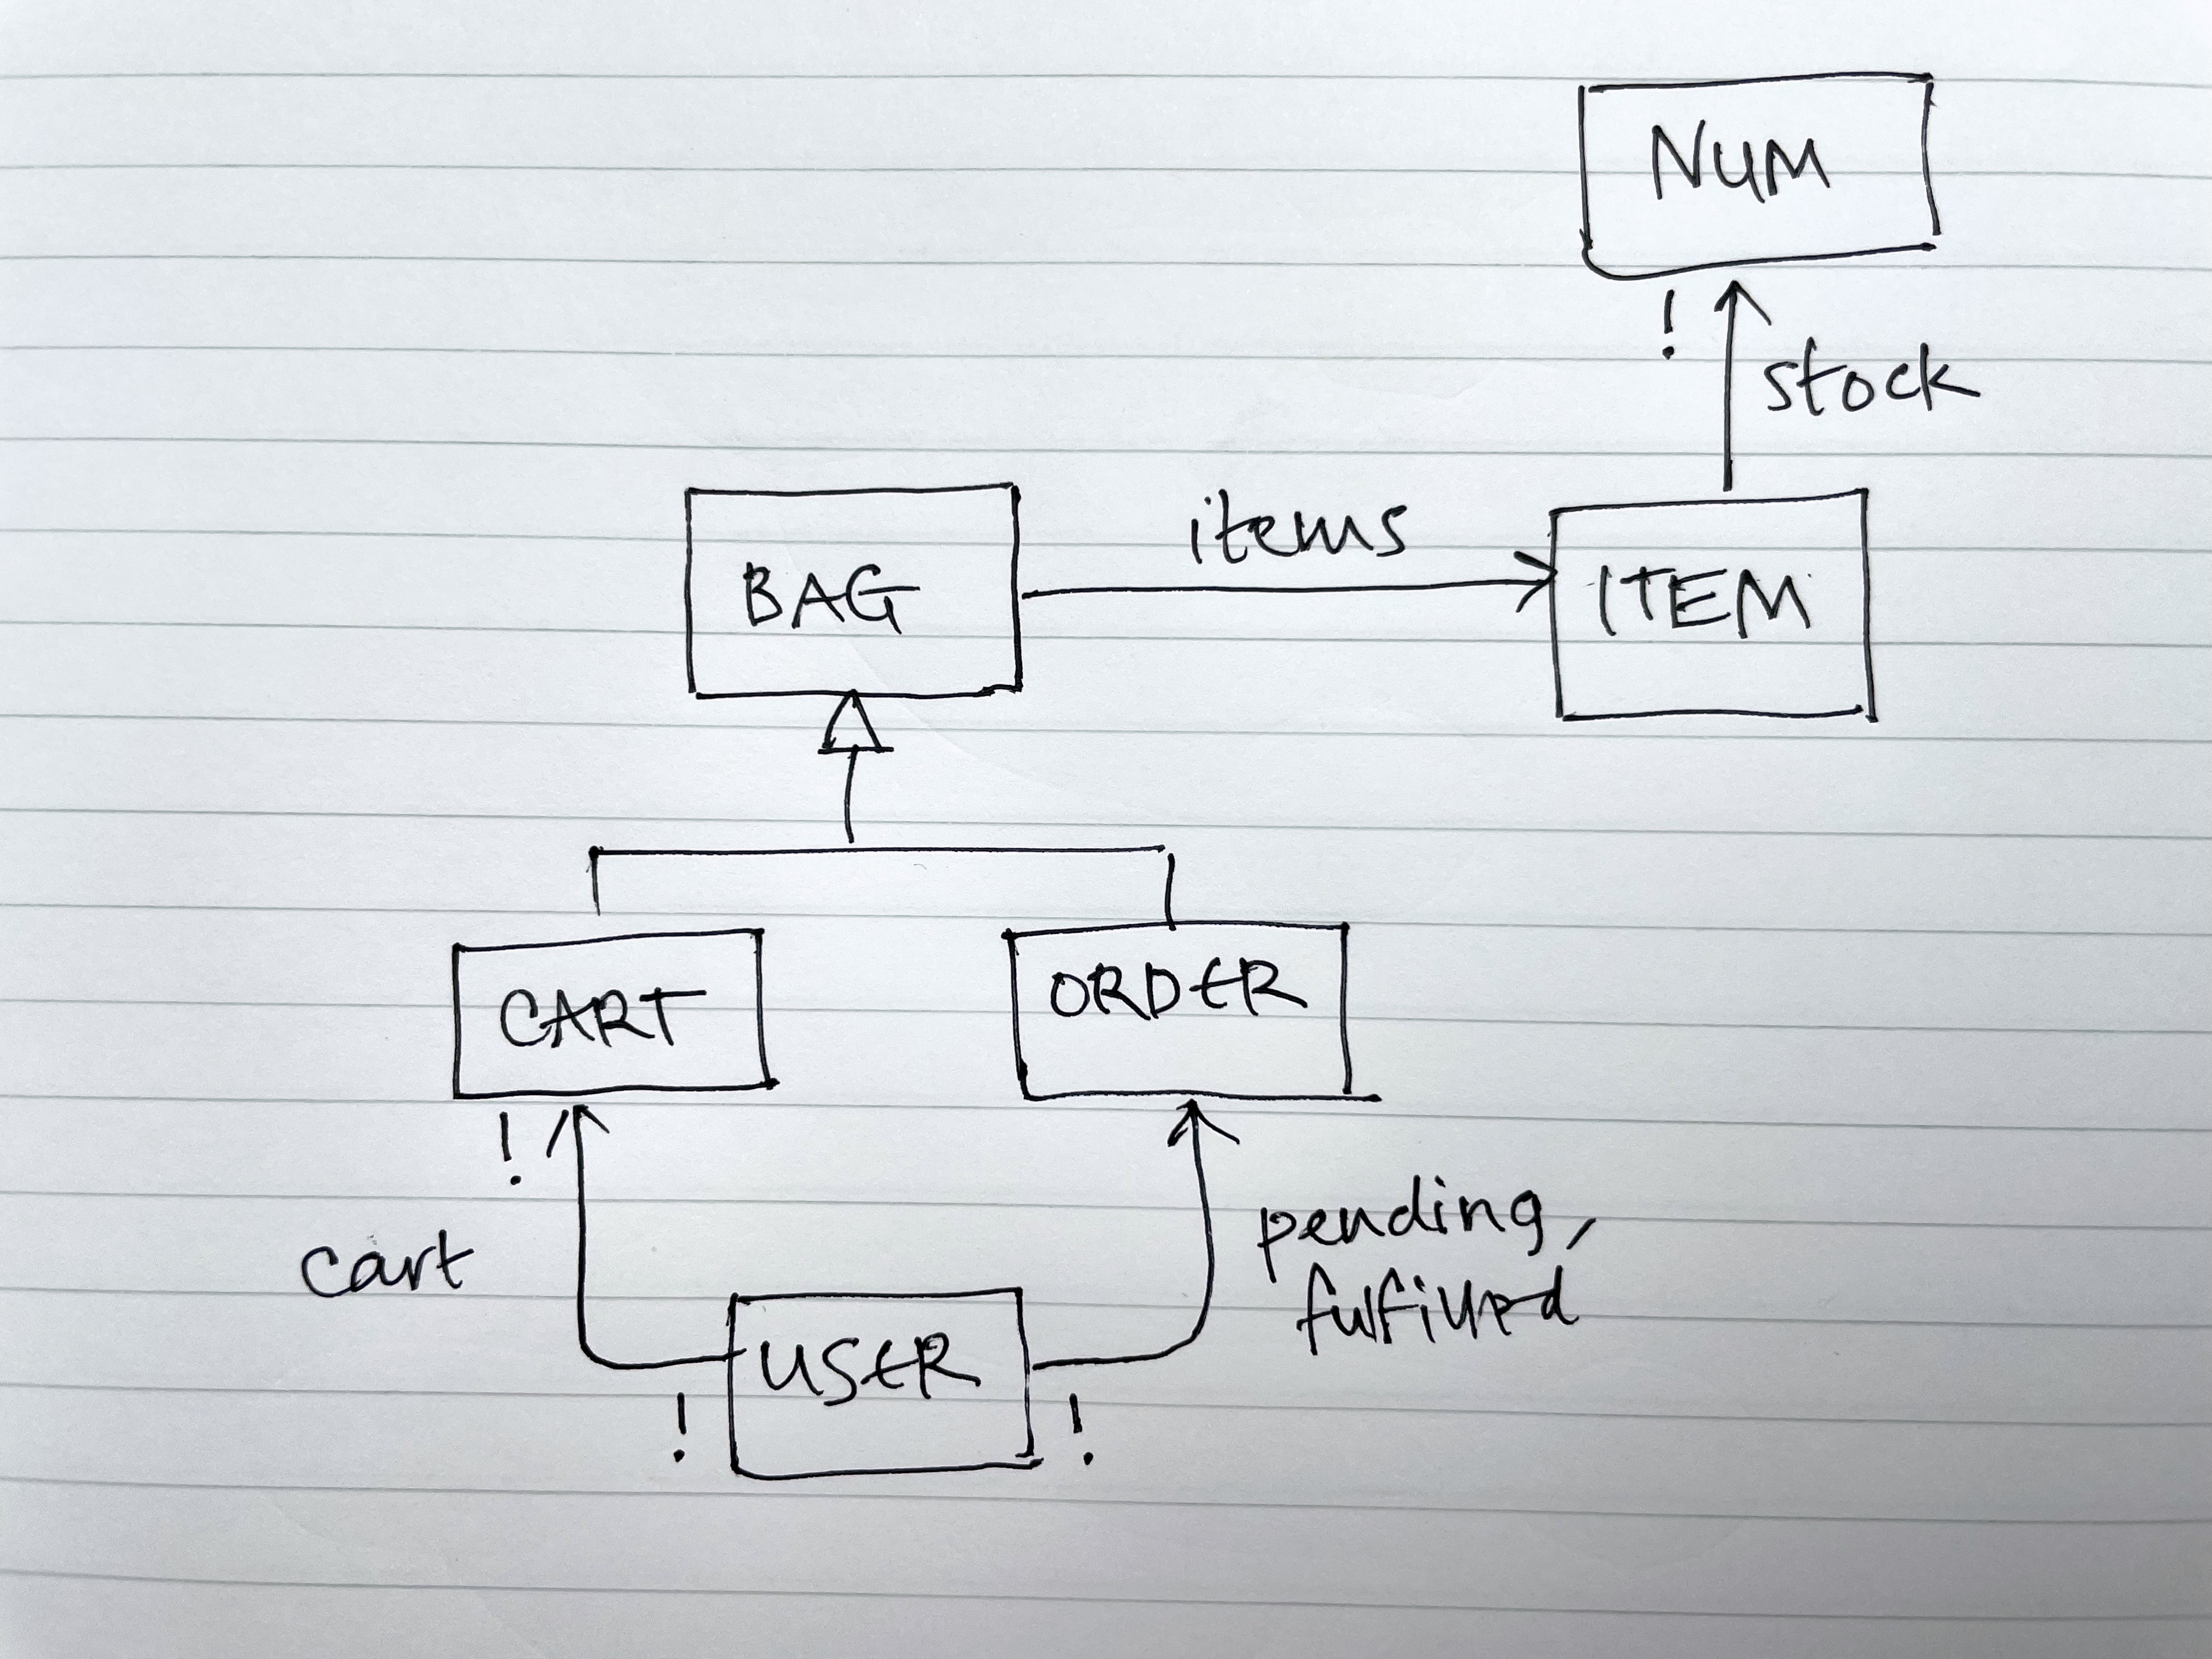 NUM
!
stock
items
BAG
ITEM
CART
ORDER
!
cart
pending,
fulfilled
USER
!
!